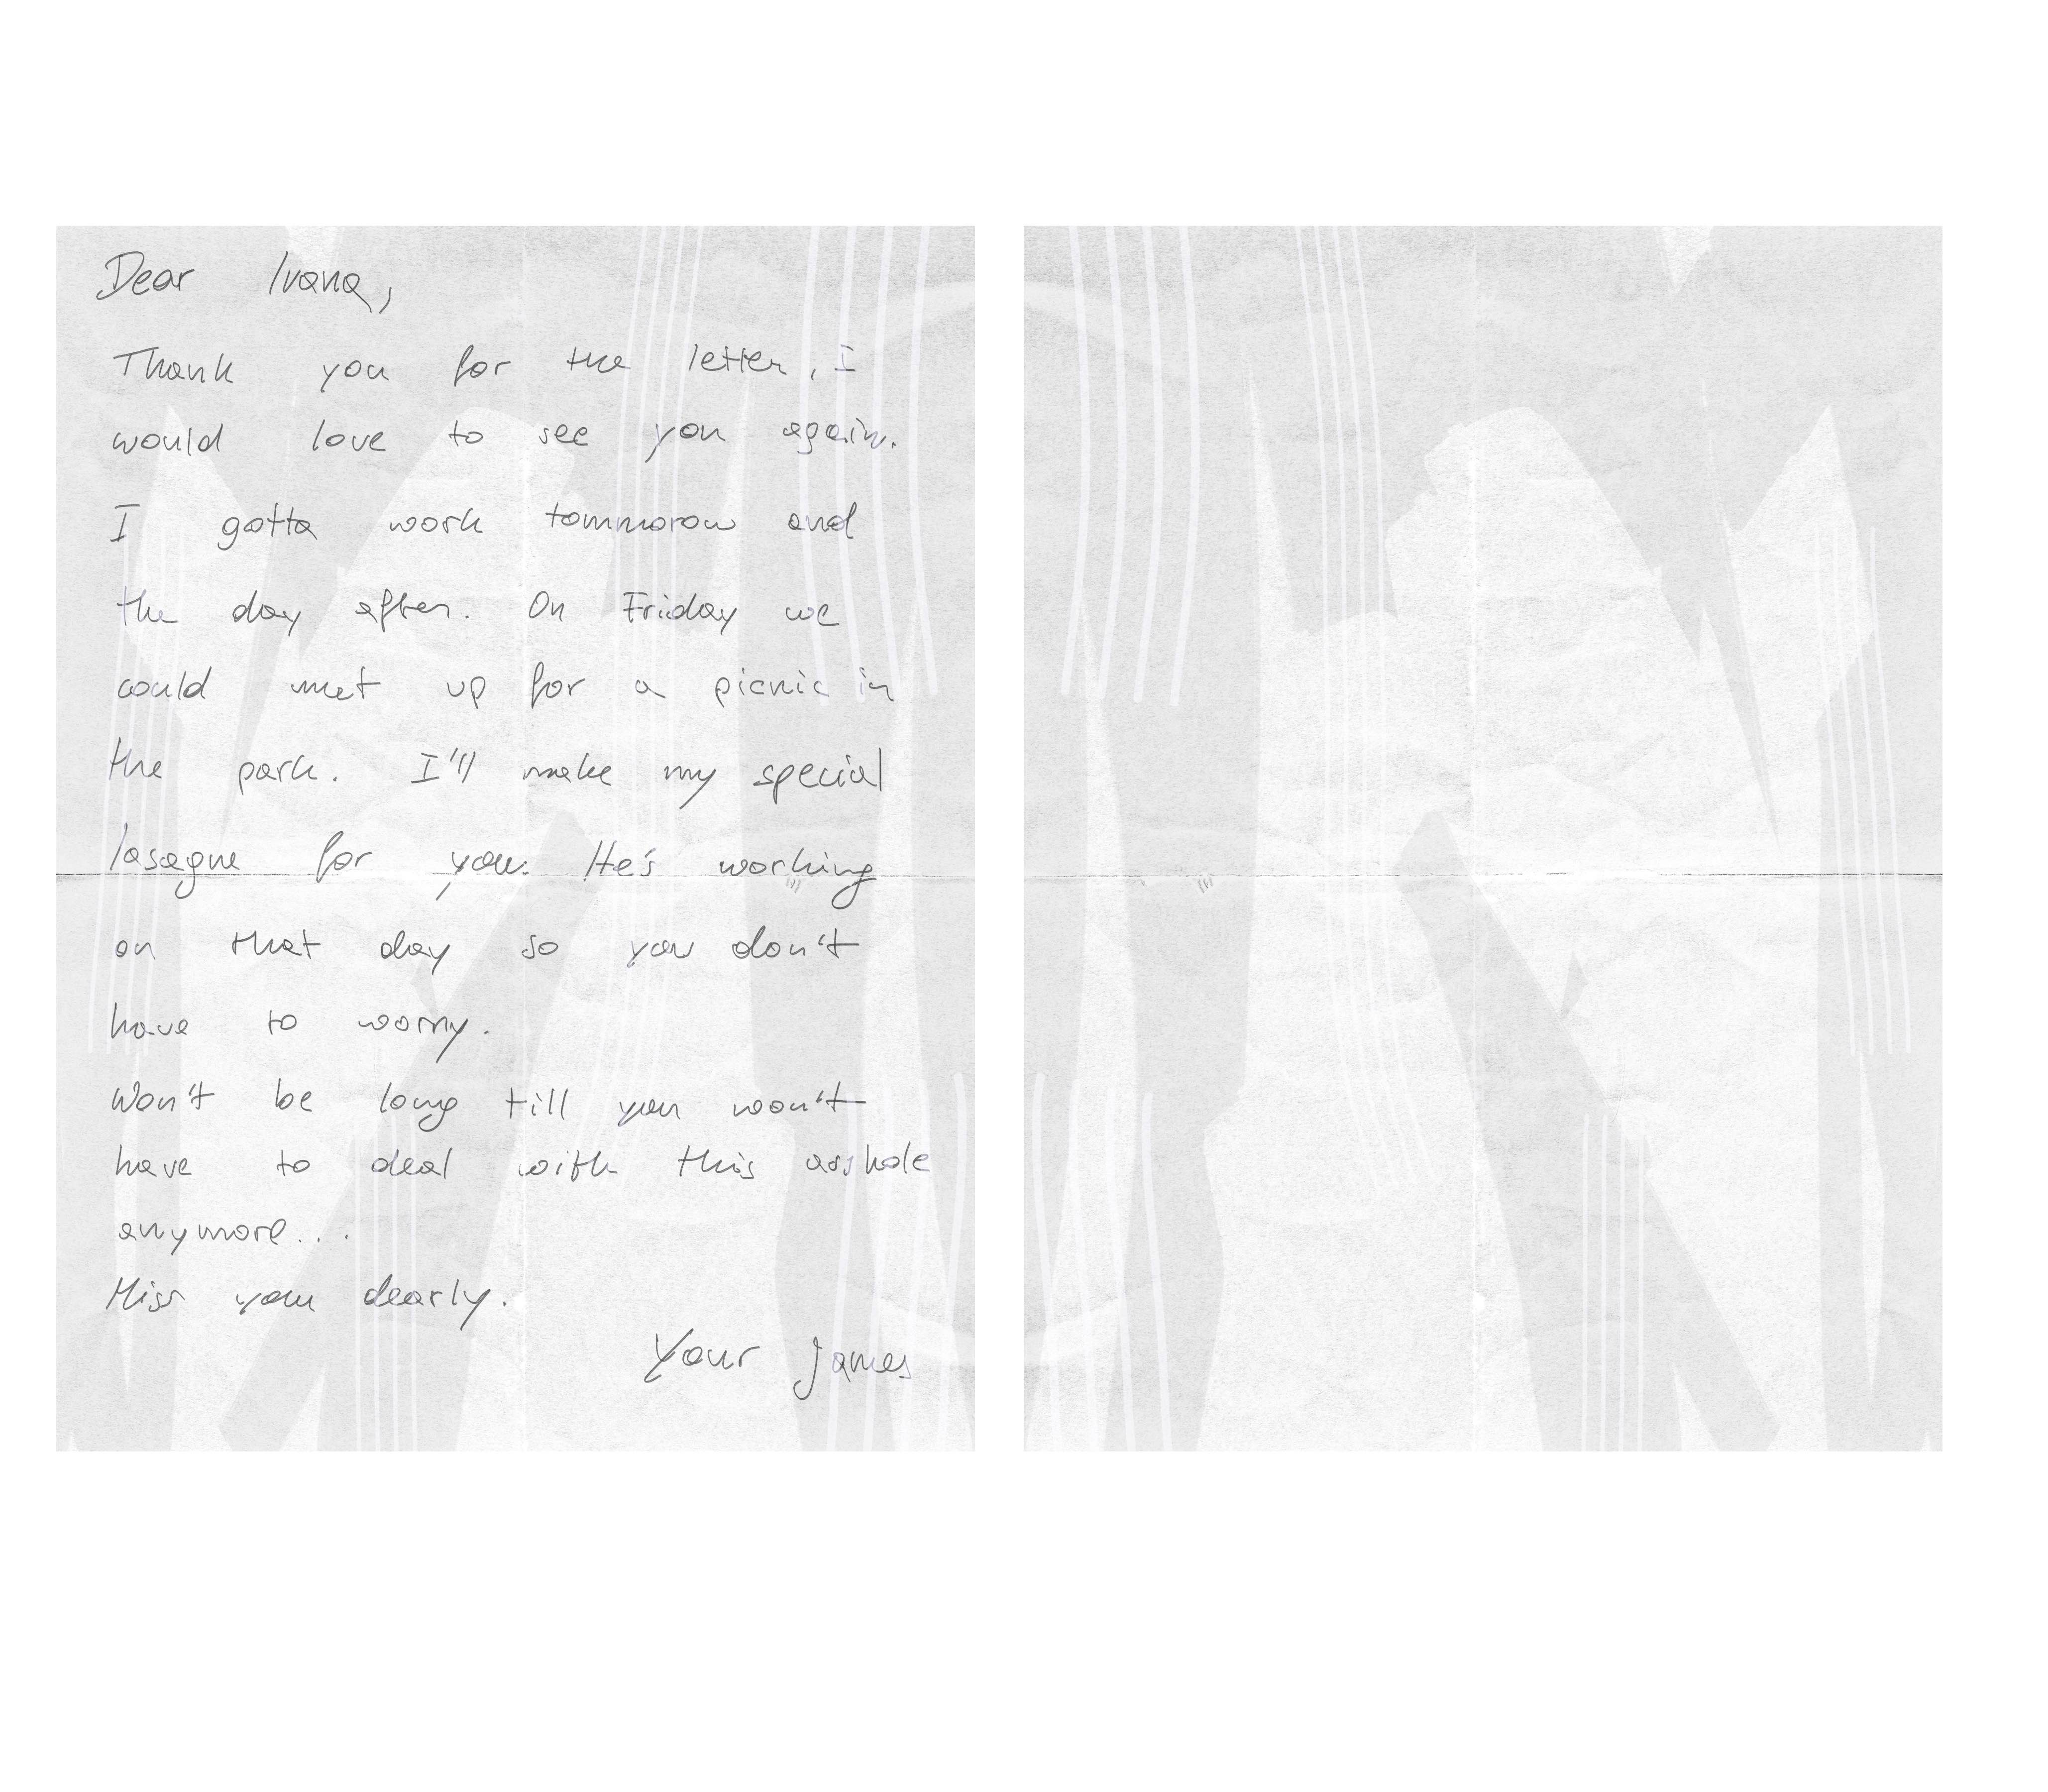 Dear Ivana,
Thank you for the letter, I
would love to see you again.
I gotta work tommorow and
the day after. On Friday we
could met up for a picnic in
the park. I'll make my special
lasagne for you. He's working
on that day so you don't
have to worry.
Won't be long till you won't
have to deal with this asshole
anymore...
Miss you dearly.
Your James